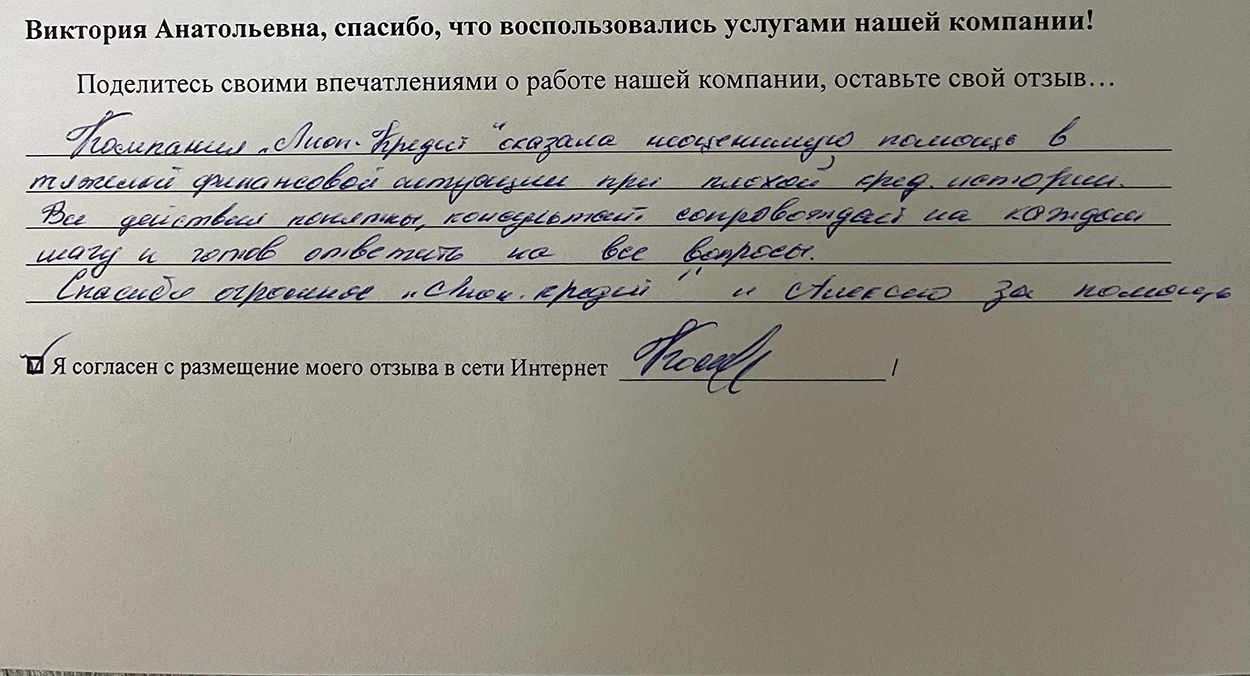 Виктория Анатольевна, спасибо, что воспользовались услугами нашей компании!
Поделитесь своими впечатлениями о работе нашей компании, оставьте свой отзыв…
Компания „Лион-Кредит“ оказала неоценимую помощь в
тяжелой финансовой ситуации при плохой кред. истории.
Все действия понятны, консультант сопровождает на каждом
шагу и готов ответить на все вопросы.
Спасибо огромное „Лион-кредит“ и Алексею за помощь
Я согласен с размещение моего отзыва в сети Интернет /